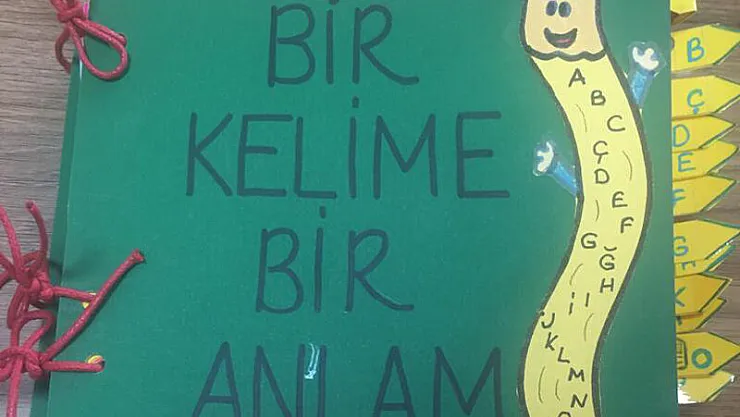 BİR
KELİME
BİR
ANLAM
A
B
C
Ç
D
E
F
G
Ğ
H
I
İ
J
K
L
M
N
B
Ç
D
E
F
G
K
O